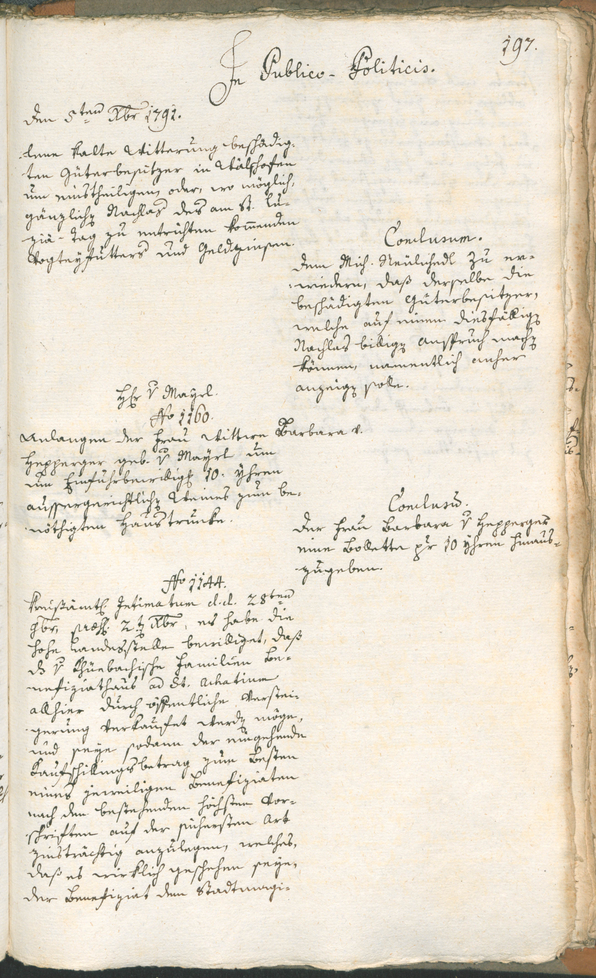 197.
In Publico-Politicis.
den 5ten Xbr 1791.
kalte Witterung beschädig-
ten Güterbesitzer in
um mittheiligen oder, wo möglich,
gänzlichen Nachlas des am St. Lu-
ziä-tag zu entrichten kommenden
Vogteyfutters und Geldzinsen.
Conclusum.
dem Mich. zu er-
wiedern, daß derselbe die
beschädigten Güterbesitzer,
welche auf einen diesfälligen
Nachlas billigen anspruch machen
können, namentlich anher
anzeigen solle.
H: v Mayrl.
No 1160.
Anlangen der Frau Wittwe Barbara v.
Hepperger geb. v Mayrl um
um Einfuhrbewilligung 10. Yhren
aussergerichtlichen Weines zum be-
nöthigten Haustrunke.
Conclusum.
Der Frau Barbara v Hepperger
eine Bolletta pr 10 Yhren hinaus-
zugeben.
No 1144.
Kreisämtl. Intimatum d.d. 28ten
9br, präs. 2ten Xbr, es habe die
hohe Landesstelle bewilliget, daß
das v Küebachische Familien Be-
nefiziathaus ad St. Achatium
allhier durch öffentliche Verstei-
gerung verkaufet werden möge,
und seye sodann der eingehende
Kaufschillingsbetrag zum Besten
eines jeweiligen Benefiziaten
nach den bestehenden höchsten Vor-
schriften auf der sichersten Art
zinsträchtig anzulegen, welches,
daß es wirklich geschehen seye,
der Benefiziat dem Stadtmagi-